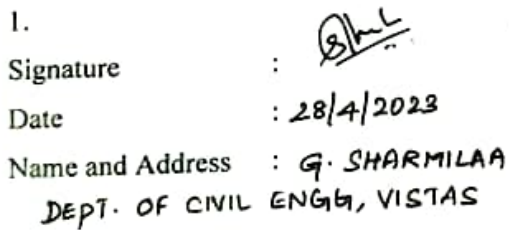 1.
Signature :
Date : 28/4/2023
Name and Address : G. SHARMILAA
DEPT. OF CIVIL ENGG, VISTAS